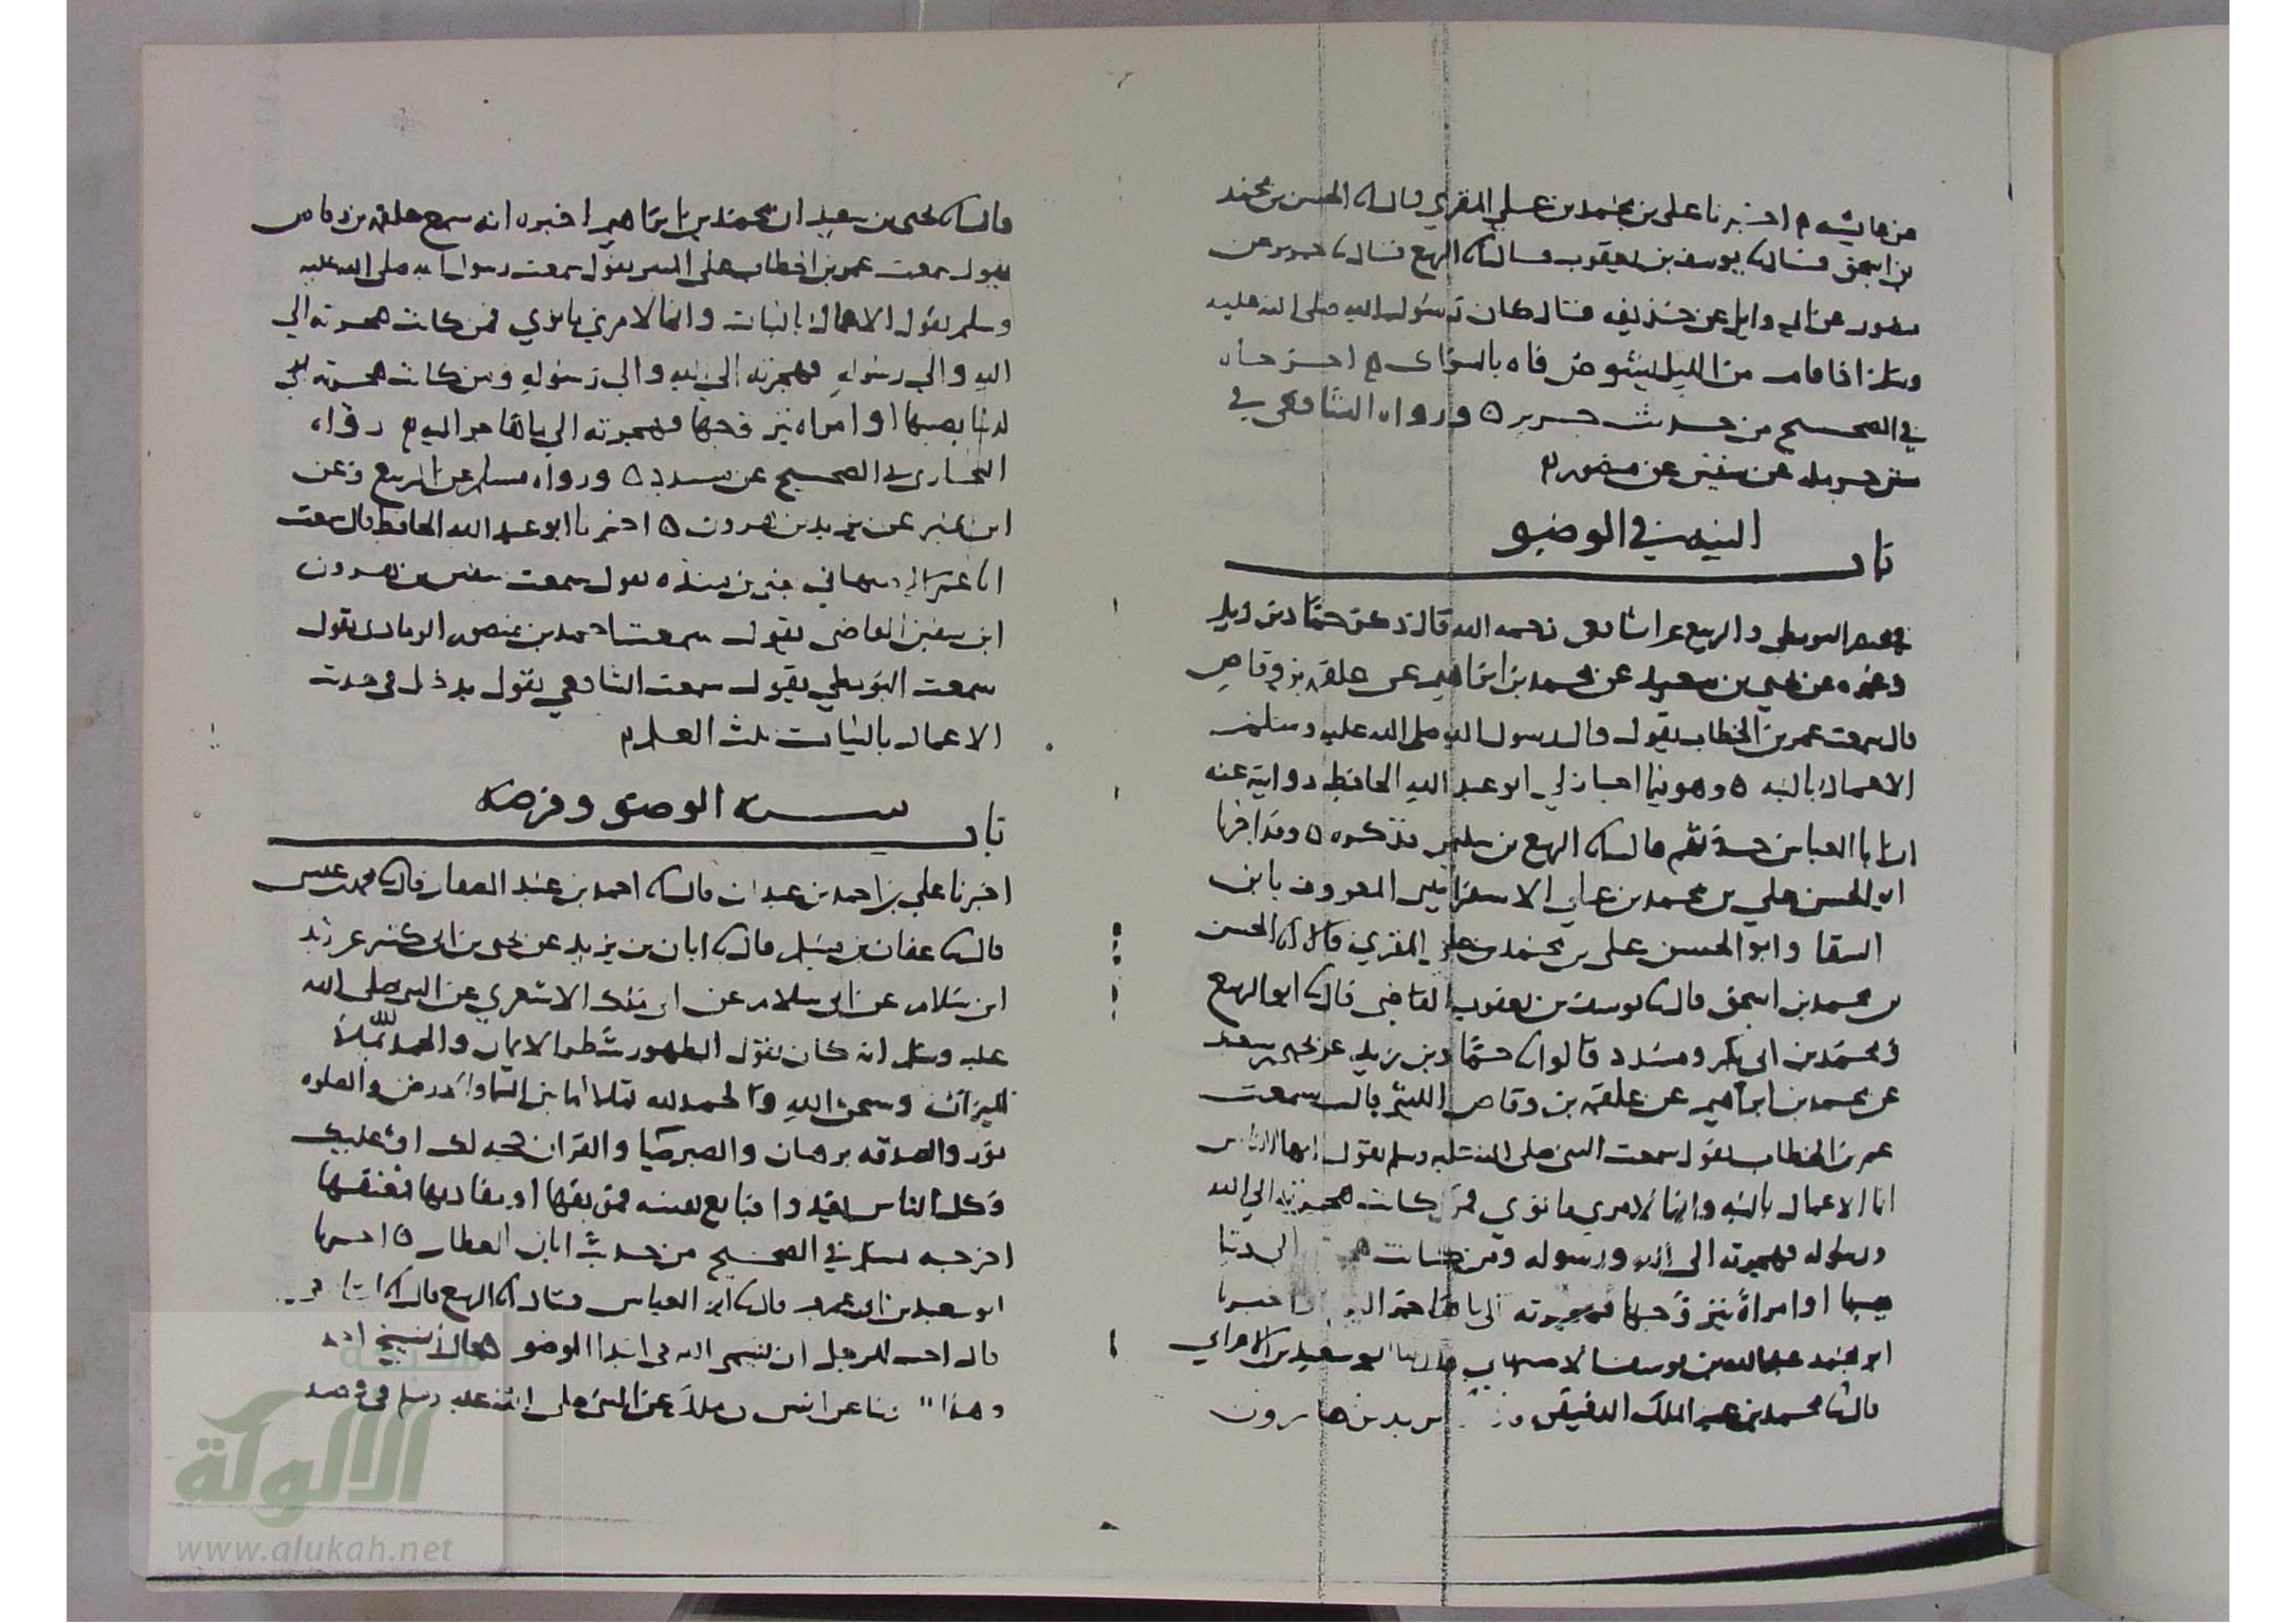 من عايشه ۾ اخبرنا علي بن محمد بن علي المقري قال انا الحسن بن محمد
بن اسحق قال نا يوسف بن يعقوب قال نا ابو الربيع قال نا جرير عن
منصور عن ابي وايل عن حذيفه قال كان رسول الله صلى الله عليه
وسلم اذا قام من الليل يشوص فاه بالسواك ۾ اخرجاه
في الصحيح من حديث جرير ٥ ورواه الشافعي في
سنن حرمله عن سفين عن منصور ۾
باب النيه في الوضو
في مختصر البويطي والربيع عن الشافعي رحمه الله قال روى عن حماد بن زيد
وغيره عن يحيى بن سعيد عن محمد بن ابراهيم عن علقمه بن وقاص
قال سمعت عمر بن الخطاب يقول قال رسول الله صلى الله عليه وسلم
الاعمال بالنيه ٥ وهو فيما اجاز لي ابو عبد الله الحافظ روايته عنه
ان ابا العباس حدثهم قال انا الربيع بن سليمن فذكره ٥ وقد اخبرنا
ابو الحسن علي بن محمد بن علي الاسفرايني المعروف بابن
السقا وابو الحسن علي بن محمد بن علي المقري قالا انا الحسن
بن محمد بن اسحق قال نا يوسف بن يعقوب القاضي قال نا ابو الربيع
ومحمد بن ابي بكر ومسدد قالوا نا حماد بن زيد عن يحيى بن سعيد
عن محمد بن ابراهيم عن علقمه بن وقاص الليثي قال سمعت
عمر بن الخطاب يقول سمعت النبي صلى الله عليه وسلم يقول ايها الناس
انما الاعمال بالنيه وانما لامري ما نوى فمن كانت هجرته الى الله
ورسوله فهجرته الى الله ورسوله ومن كانت الى دنيا
يصيبها او امراة يتزوجها فهجرته الى ما هاجر اليه اخبرنا
ابو محمد عبد الله بن يوسف الاصبهاني قال انا ابو سعيد بن الاعرابي
قال نا محمد بن عبد الملك الدقيقي يزيد بن هارون
قال نا يحيى بن سعيد ان محمد بن ابراهيم اخبره انه سمع علقمه بن وقاص
يقول سمعت عمر بن الخطاب على المنبر يقول سمعت رسول الله صلى الله عليه
وسلم يقول الاعمال بالنيات وانما لامري ما نوى فمن كانت هجرته الى
الله والى رسوله فهجرته الى الله والى رسوله ومن كانت هجرته الى
لدنيا يصيبها او امراه يتزوجها فهجرته الى ما هاجر اليه ۾ رواه
البخاري في الصحيح عن مسدد ٥ ورواه مسلم عن ابي الربيع وعن
ابن نمير عن يزيد بن هرون ٥ اخبرنا ابو عبد الله الحافظ قال سمعت
يقول سمعت
يقول سمعت احمد بن منصور الرمادي يقول
سمعت البويطي يقول سمعت الشافعي يقول يدخل في حديث
الاعمال بالنيات ثلث العلم ۾
باب سنه الوضو وفرضه
اخبرنا علي بن احمد بن عبدان قال نا احمد بن عبيد الصفار قال نا محمد بن عيسى
قال نا عفان بن مسلم قال نا ابان بن يزيد عن يحيى بن ابي كثير عن زيد
ابن سلام عن ابي سلام عن ابي مالك الاشعري عن النبي صلى الله
عليه وسلم انه كان يقول الطهور شطر الايمان والحمد لله تملا
الميزان وسبحن الله والحمد لله تملا ما بين السما والارض والصلوه
نور والصدقه برهان والصبر ضيا والقران حجه لك او عليك
وكل الناس يغدوا فبايع نفسه فموبقها او مفاديها فمعتقها
اخرجه مسلم في الصحيح من حديث ابان العطار ٥ اخبرنا
ابو سعيد بن ابي عمرو قال نا ابو العباس قال انا الربيع قال انا الشافعي
قال احب للرجل ان يسمي الله في ابتدا الوضو ٥ قال الشيخ احمد
وهذا عن انس بن ملك عن النبي صلى الله عليه وسلم في قصه
شبكة
الألوكة
www.alukah.net